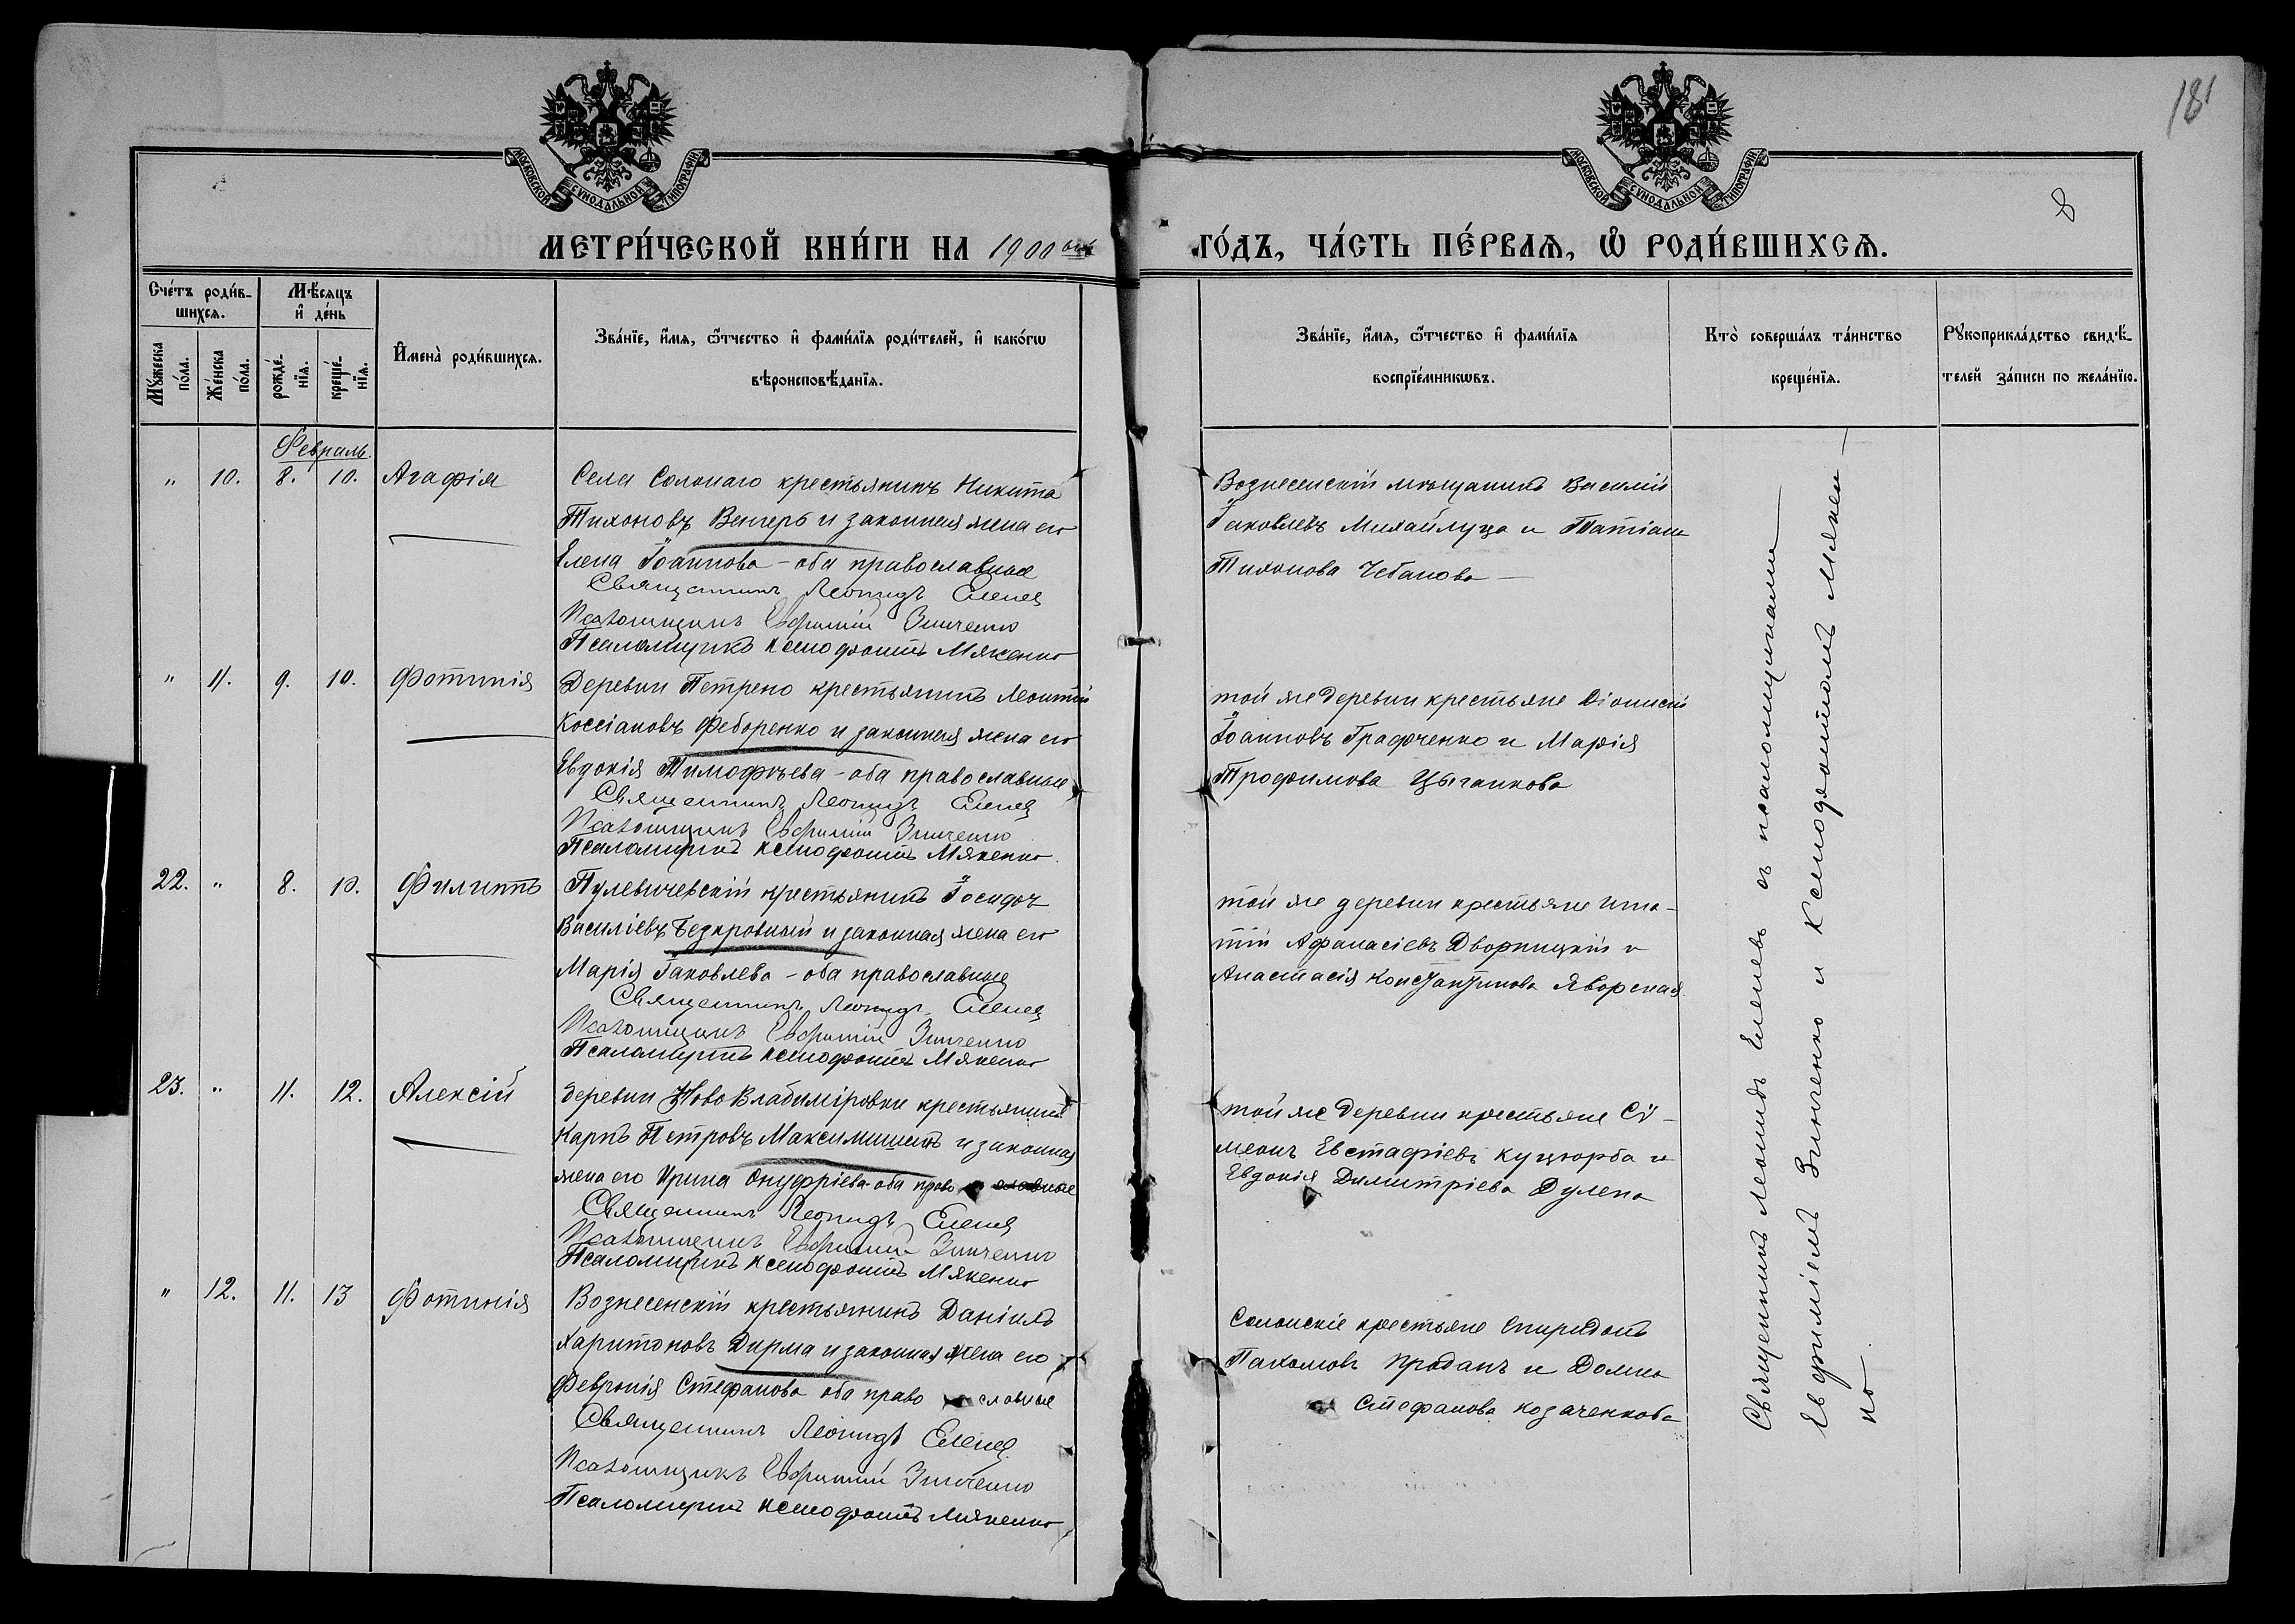 181
8
МОСКОВСКОЙ СѴНОДАЛЬНОЙ ТИПОГРАФІИ
МОСКОВСКОЙ СѴНОДАЛЬНОЙ ТИПОГРАФІИ
МЕТРИ́ЧЕСКОЙ КНИ́ГИ НА 1900 ый ГО́ДЪ, ЧА́СТЬ ПЕ́РВАѦ, Ѽ РОДИ́ВШИХСѦ.
Сче́тъ роди́в-
шихсѧ.
Мꙋ́жеска по́ла.
Же́нска по́ла.
Мѣ́сѧцъ и҆ де́нь
рожде́-нїѧ.
креще́-нїѧ.
И҆мена̀ роди́вшихсѧ.
Зва́нїе, и҆́мѧ, ѻ҆́тчество и҆ фами́лїѧ роди́телей, и҆ како́гѡ
вѣроисповѣ́данїѧ.
Зва́нїе, и҆́мѧ, ѻ҆́тчество и҆ фами́лїѧ
воспрїе́мникѡвъ.
Кто̀ соверша́лъ та́инство
креще́нїѧ.
Рꙋкоприкла́дство свидѣ́-
телей за́писи по жела́нїю.
Февраль.
" 10. 8. 10. Агафія
Села Солонаго крестьянинъ Никита
Тихоновъ Венгеръ и законная жена его
Елена Іоаннова - оба православные
Священникъ Леонидъ Еленевъ
Псаломщикъ Евфимій Зинченко
Псаломщикъ Ксенофонтъ Мякенко
Вознесенскій мѣщанинъ Василій
Іаковлевъ Михайлуца и Татіана
Тихонова Чебанова
" 11. 9. 10. Фотинія
Деревни Петрено крестьянинъ Леонтій
Коссіановъ Федоренко и законная жена его
Евдокія Тимофѣева - оба православные
Священникъ Леонидъ Еленевъ
Псаломщикъ Евфимій Зинченко
Псаломщикъ Ксенофонтъ Мякенко.
той же деревни крестьяне Діонисій
Іоанновъ Графченко и Марія
Трофимова Цыганкова
22. " 8. 10. Филиппъ
Пулевичевскій крестьянинъ Іосифъ
Василіевъ Безкровный и законная жена его
Марія Іаковлева - оба православные
Священникъ Леонидъ Еленевъ
Псаломщикъ Евфимій Зинченко
Псаломщикъ Ксенофонтъ Мякенко
той же деревни крестьяне Игна-
тій Афанасіевъ Дворницкій и
Анастасія Константинова Яворская.
23. " 11. 12. Алексій
деревни Ново Владиміровки крестьянинъ
Карпъ Петровъ Максимишинъ и законная
жена его Ирина Онуфріева - оба православные
Священникъ Леонидъ Еленевъ
Псаломщикъ Евфимій Зинченко
Псаломщикъ Ксенофонтъ Мякенко
той же деревни крестьяне Сѵ-
меонъ Евстафіевъ Куцюрба и
Евдокія Димитріева Дулепа
" 12. 11. 13 Фотинія
Вознесенскій крестьянинъ Даніилъ
Харитоновъ Дирма и законная жена его
Февронія Стефанова оба православные
Священникъ Леонидъ Еленевъ
Псаломщикъ Евфимій Зинченко
Псаломщикъ Ксенофонтъ Мякенко
Солонскіе крестьяне Спиридонъ
Пахомовъ Проданъ и Домна
Стефанова Козаченкова
Священникъ Леонидъ Еленевъ съ псаломщиками
Евфиміемъ Зинченко и Ксенофонтомъ Мякен-
ко.